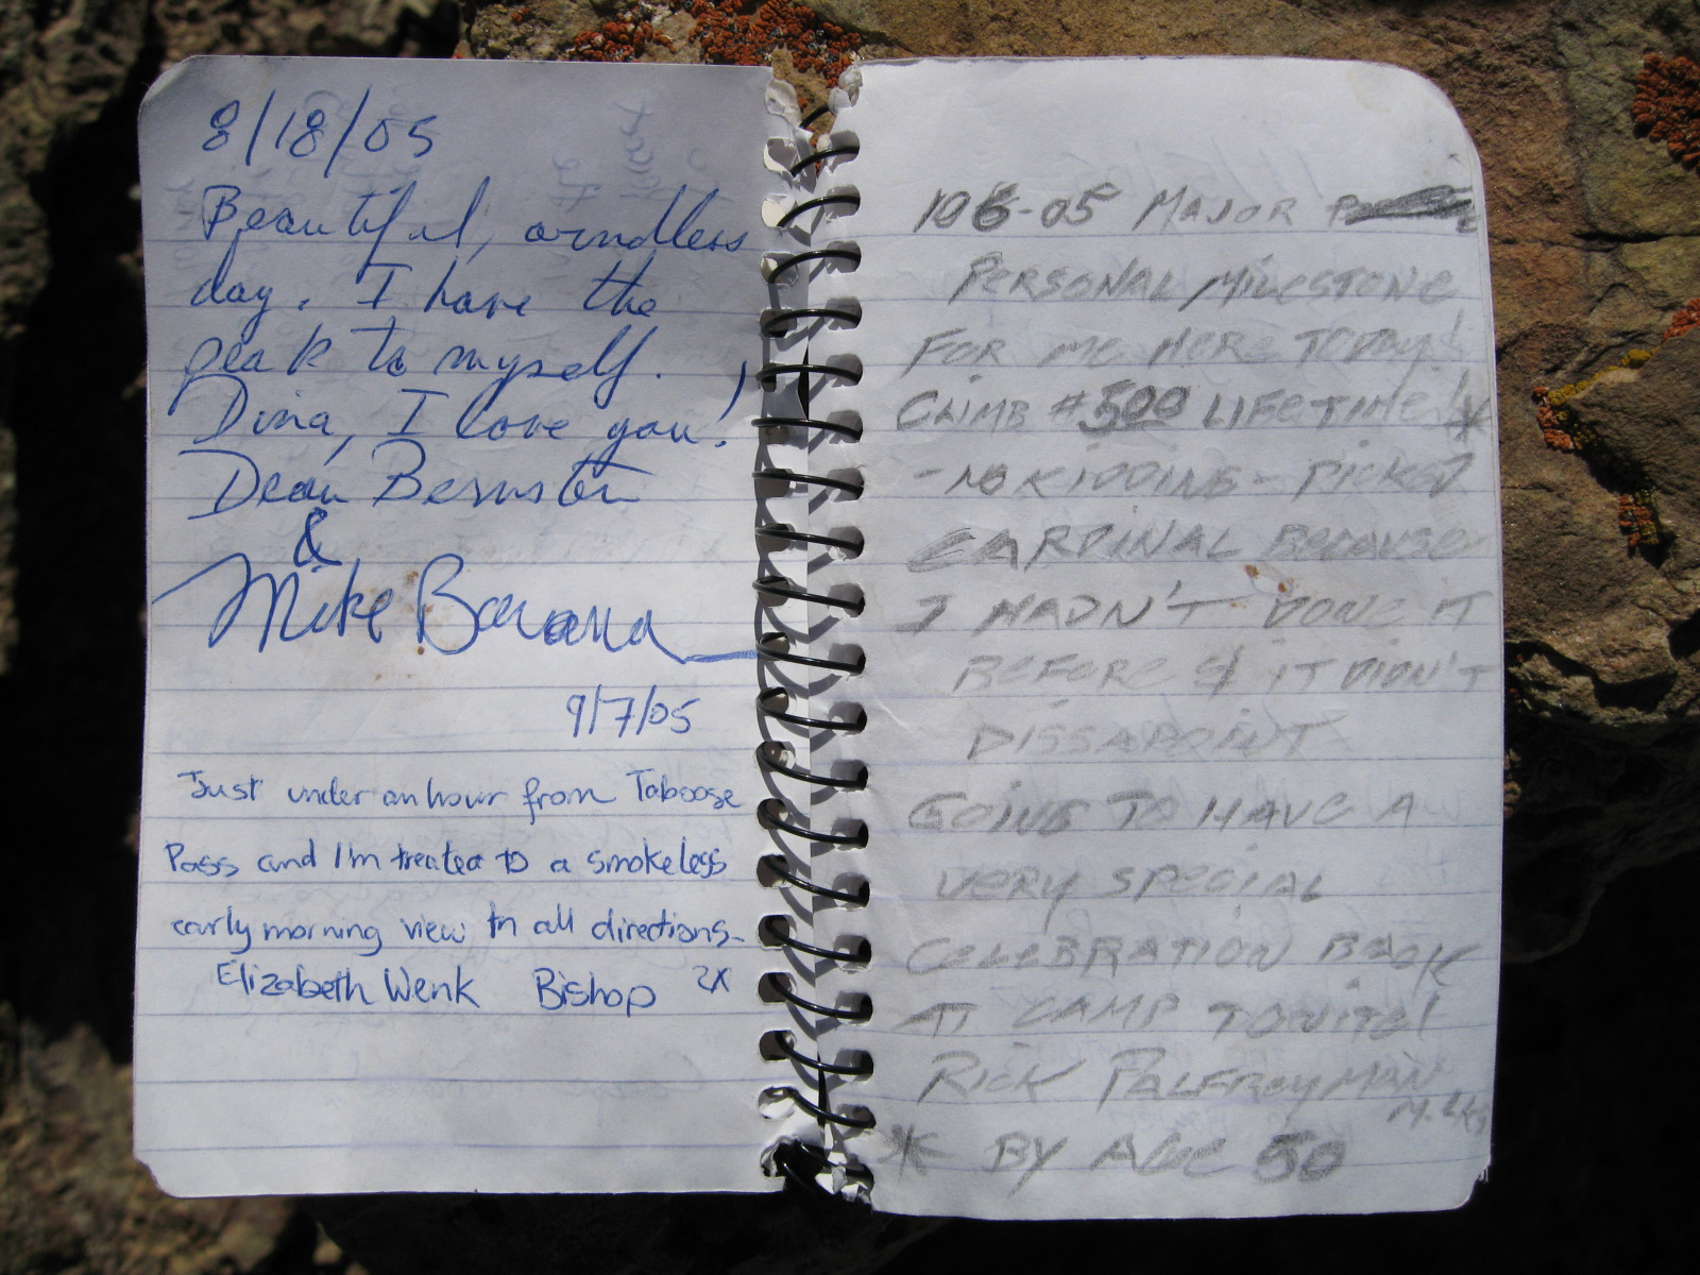 8/18/05
Beautiful, windless
day. I have the
peak to myself.
Dina, I love you!
Dean
&
Mike
9/7/05
Just under an hour from Taboose
Pass and I'm treated to a smokeless
early morning view in all directions.
Elizabeth Wenk Bishop 2x
10 6-05 MAJOR
PERSONAL MILESTONE
FOR ME HERE TODAY!
CLIMB #500 LIFETIME! *
- NO KIDDING - PICKED
CARDINAL BECAUSE
I HADN'T DONE IT
BEFORE & IT DIDN'T
DISSAPOINT
GOING TO HAVE A
VERY SPECIAL
CELEBRATION BACK
AT CAMP TONITE!
RICK PALFREYMAN
* BY AGE 50